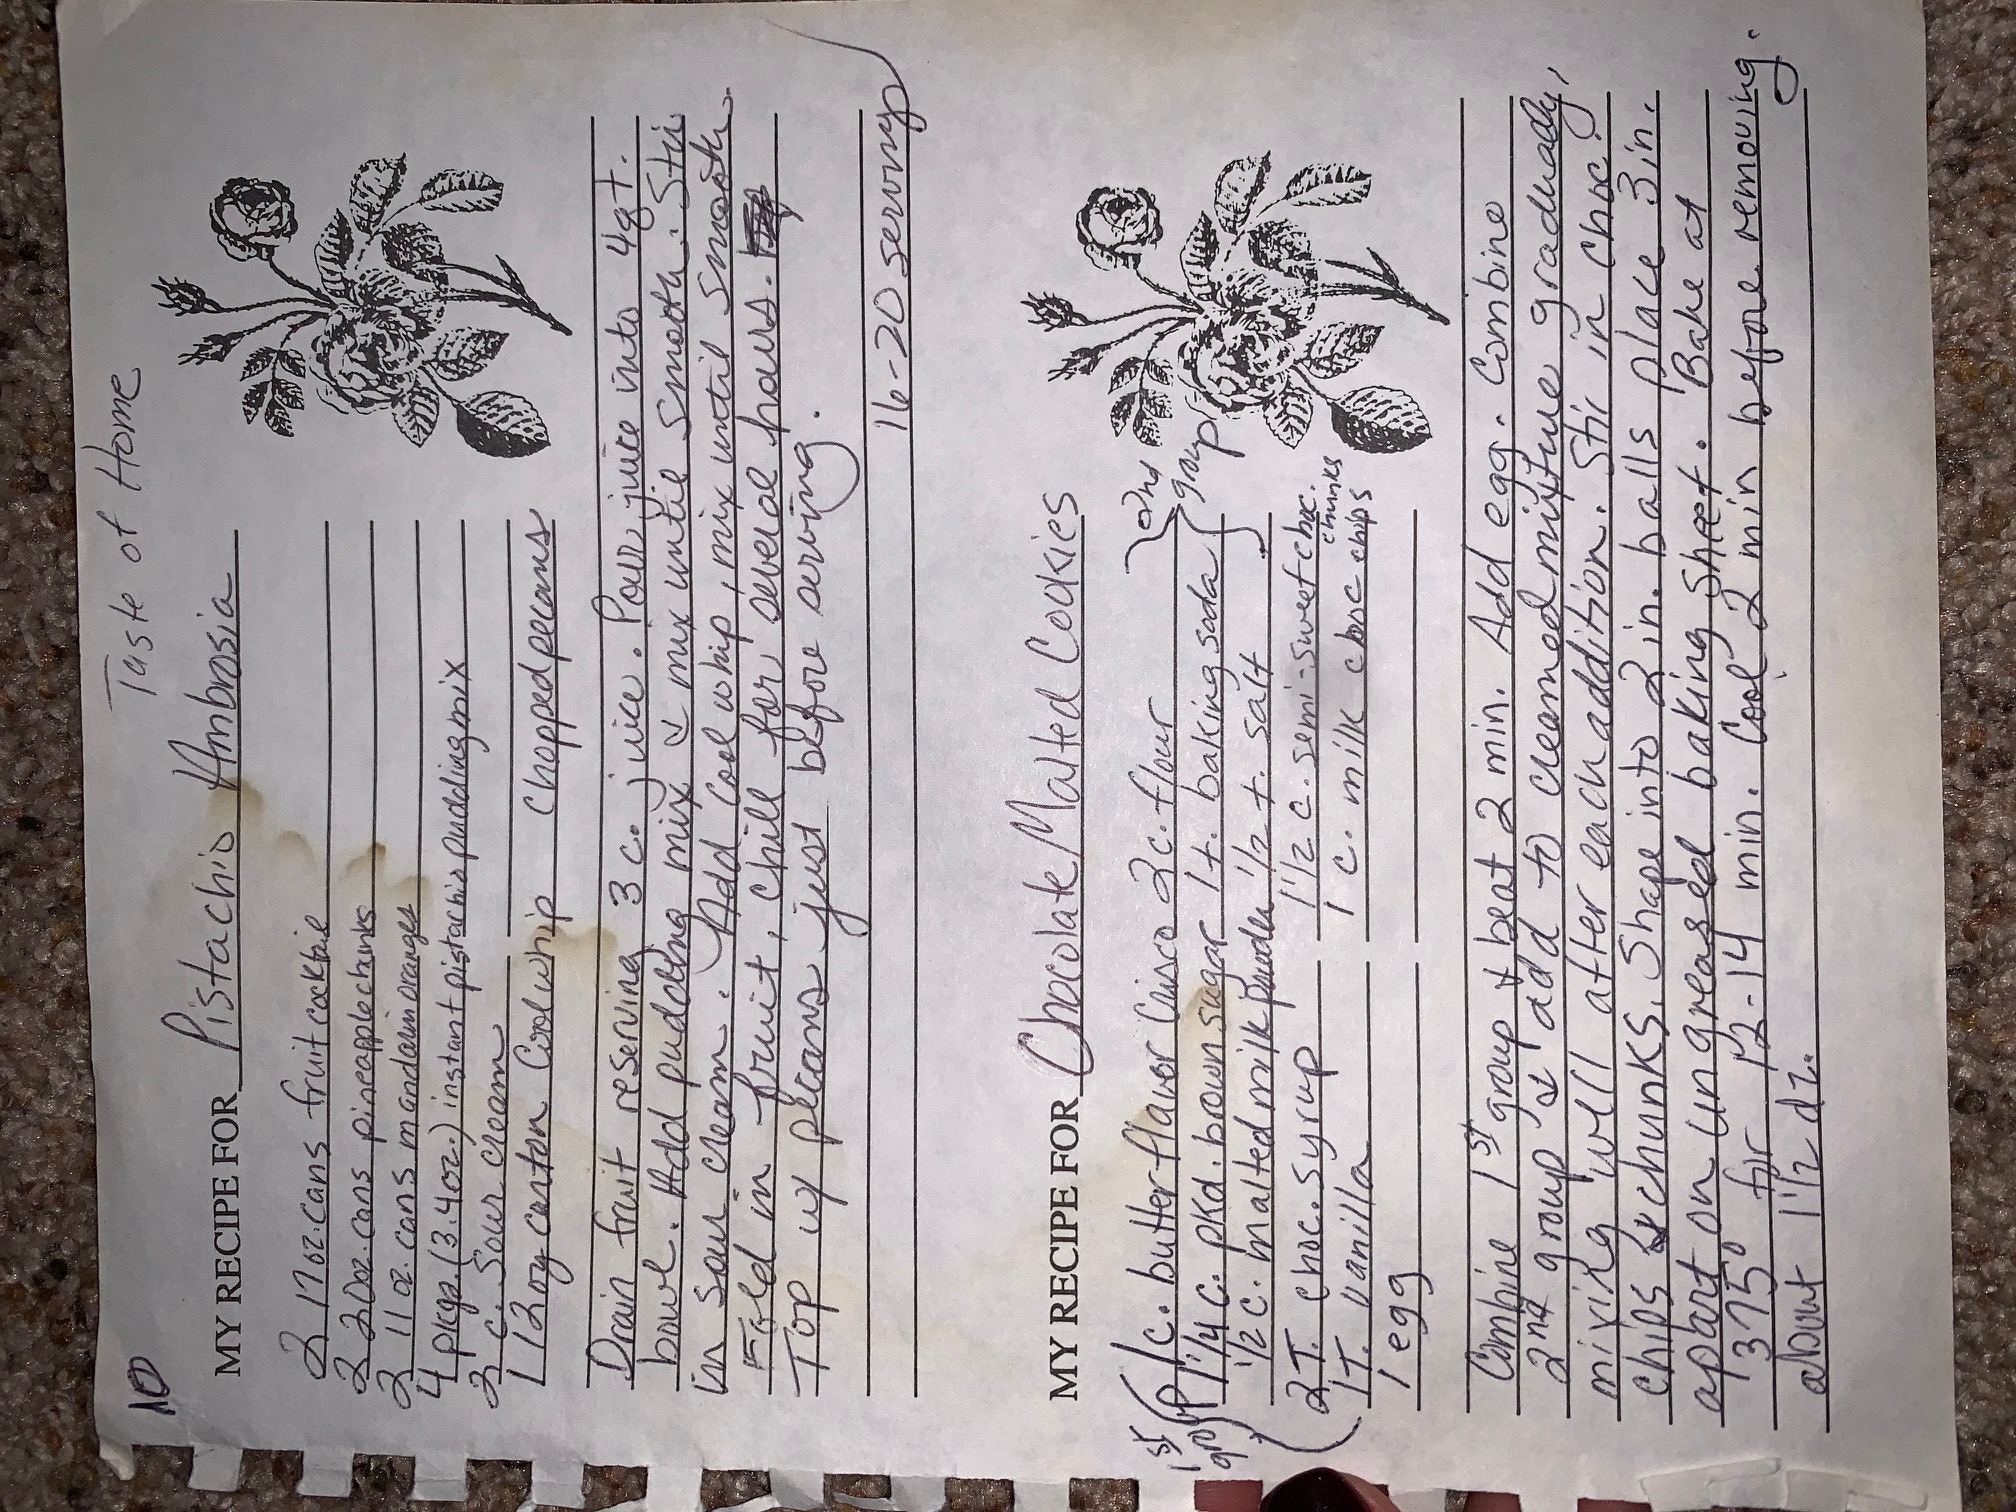 10
Taste of Home
MY RECIPE FOR Pistachio Ambrosia
2 17 oz. cans fruit cocktail
2 20 oz. cans pineapple chunks
2 11 oz. cans mandarin oranges
4 pkgs. (3.4 oz.) instant pistachio pudding mix
2 c. Sour cream
1 12 oz carton Cool whip Chopped pecans
Drain fruit reserving 3 c. juice. Pour juice into 4 qt.
bowl. Add pudding mix & mix until smooth. Stir
in sour cream. Add cool whip, mix until smooth.
Fold in fruit, chill for several hours.
Top w/ pecans just before serving.
16-20 servings
MY RECIPE FOR Chocolate Malted Cookies
1st group
1 c. butter flavor Crisco 2 c. flour
2nd group
1 1/4 c. pkd. brown sugar 1 t. baking soda
1/2 c. malted milk powder 1/2 t. salt
2 T. choc. syrup 1 1/2 c. semi-sweet choc. chunks
1 T. vanilla 1 c. milk choc chips
1 egg
Combine 1st group & beat 2 min. Add egg. Combine
2nd group & add to creamed mixture gradually,
mixing well after each addition. Stir in choc.
chips & chunks. Shape into 2 in. balls place 3 in.
apart on ungreased baking sheet. Bake at
375° for 12-14 min. Cool 2 min before removing.
about 1 1/2 dz.